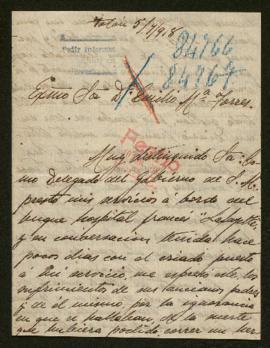 Tolón 5/7/918
Pedir informes
84766
84767
Exmo Sr Dn Emilio Mª Torres.
Muy distinguido Sr: Co-
mo Delegado del Gobierno de S. M.
presto mis servicios á bordo del
buque hospital francés Lafayette,
y en conversación tenida hace
pocos días con el criado puesto
á mi servicio, me expuso este los
sufrimientos de sus ancianos padres
y de él mismo por la ignorancia
en que se hallaban, de la suerte
que hubiera podido correr un her-